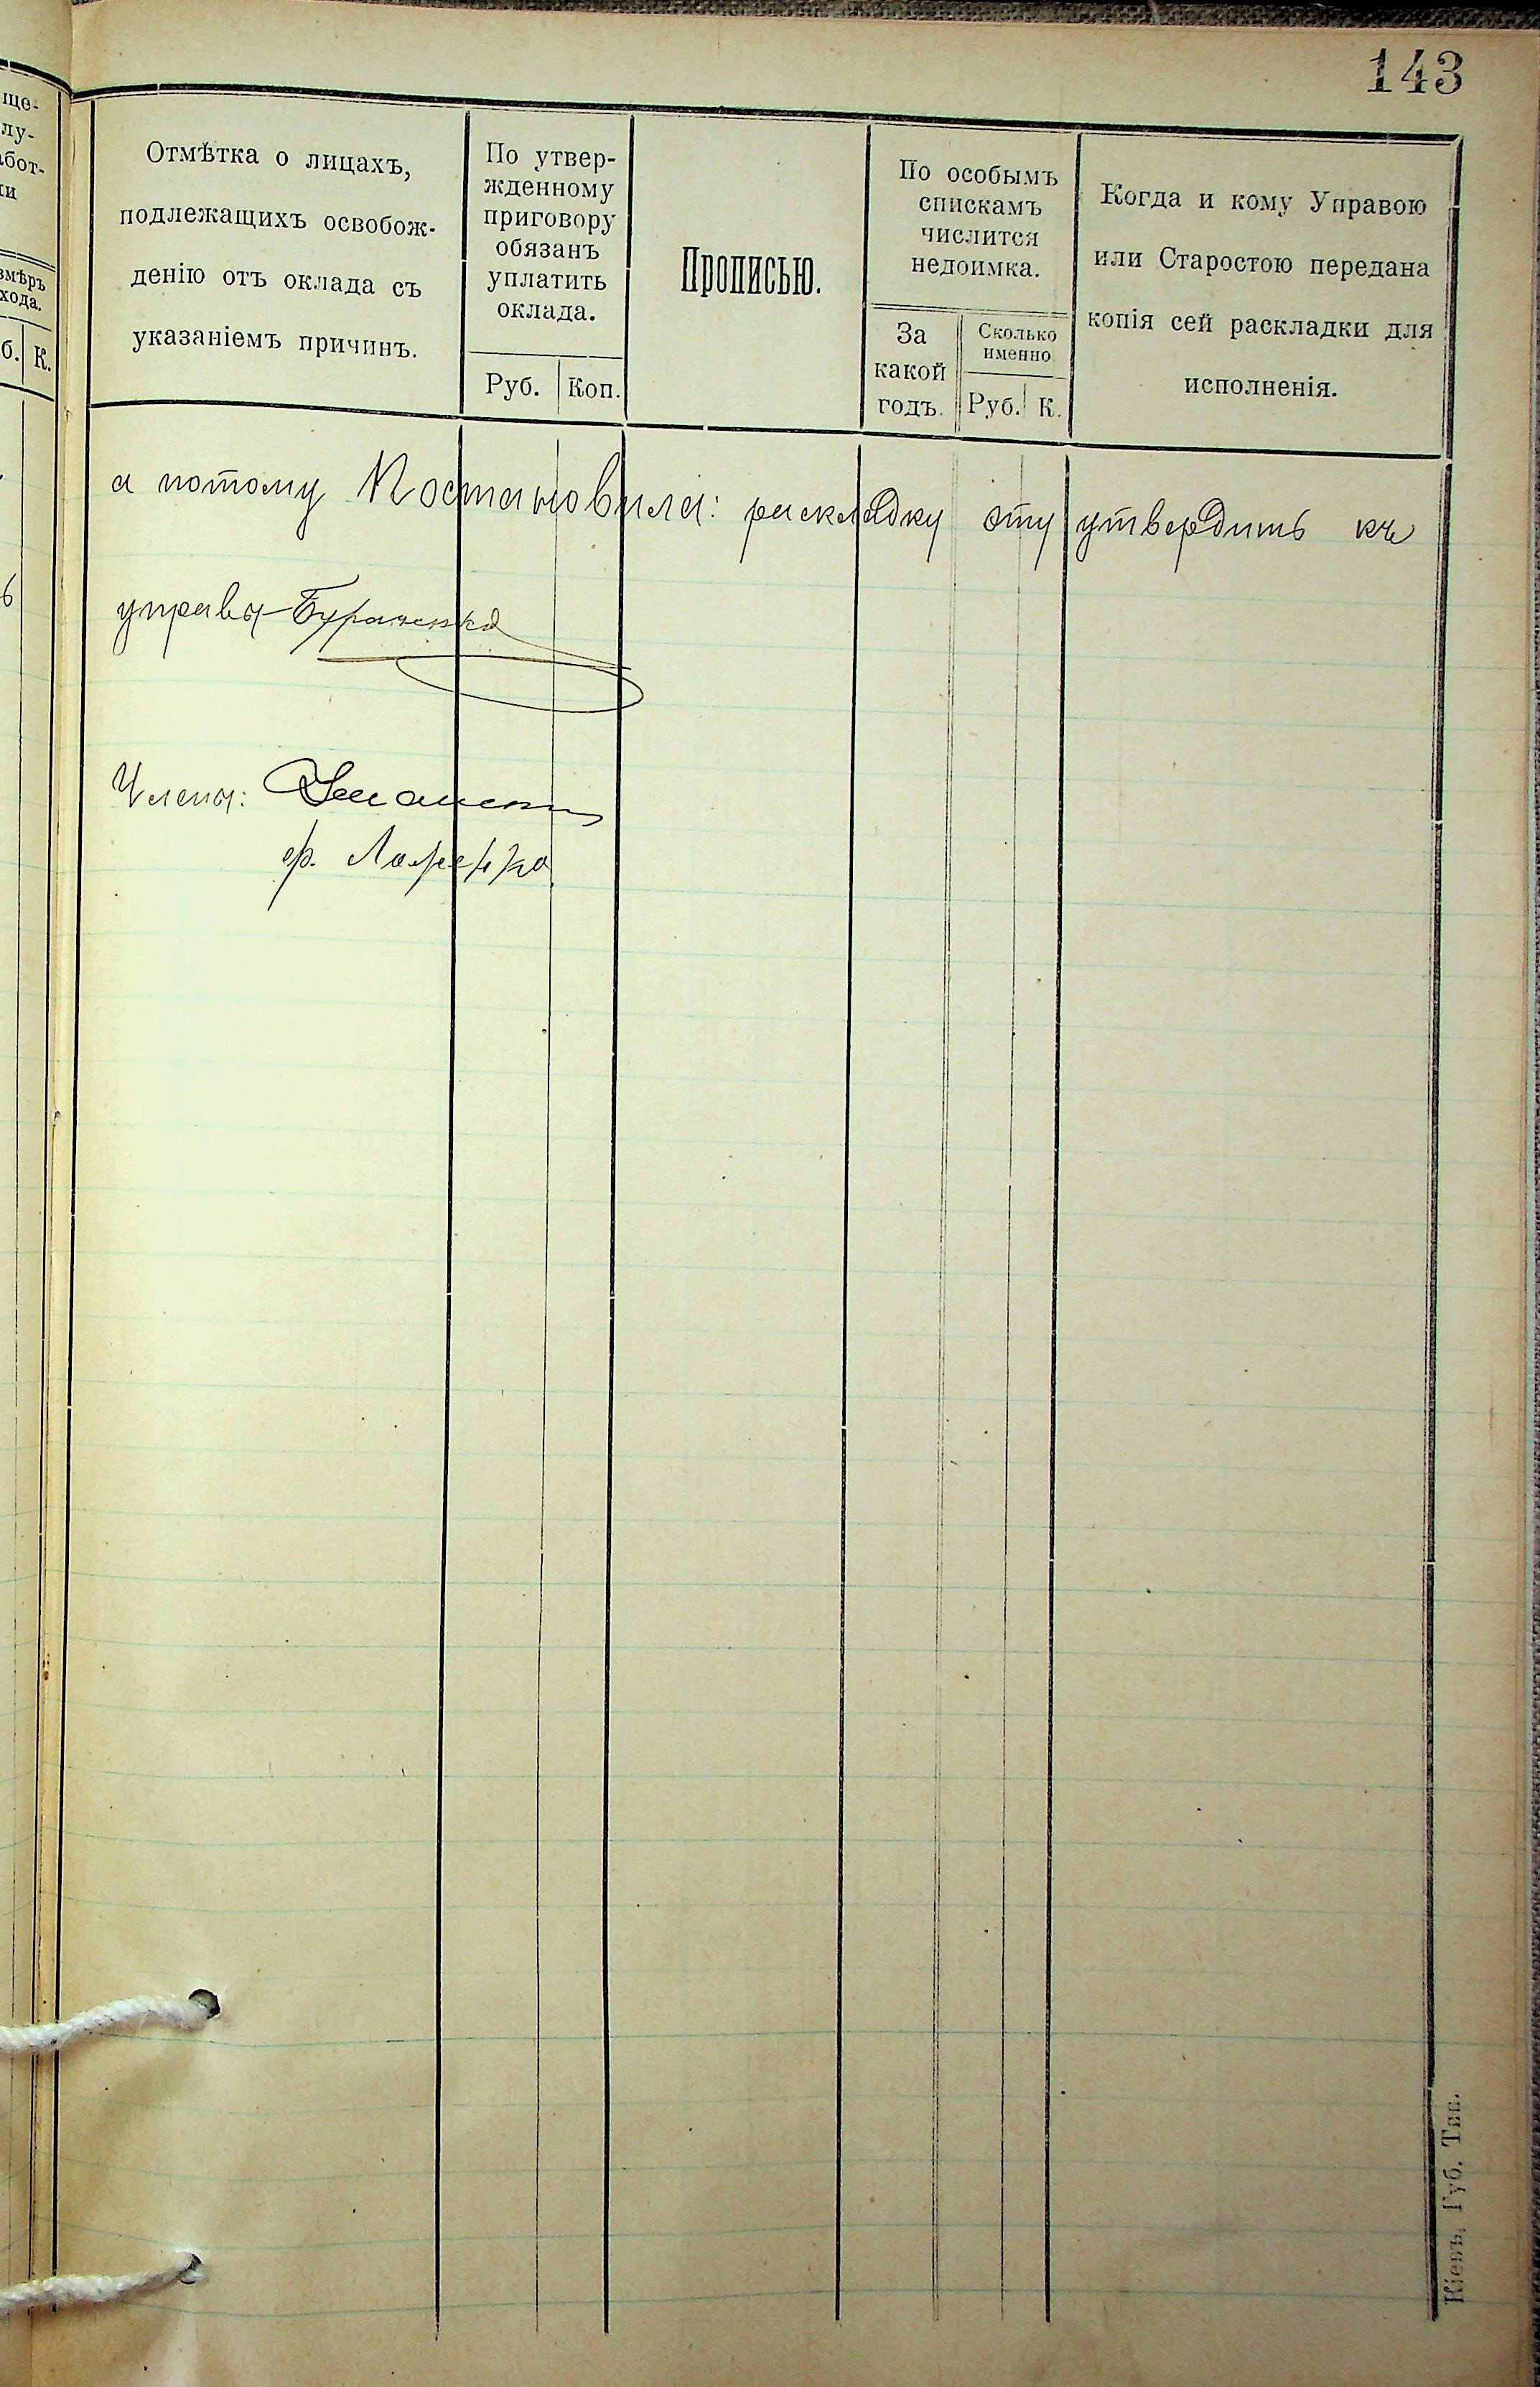 143
ще-
лу-
абот-
ги
змѣръ
хода.
б. К.
Отмѣтка о лицахъ,
подлежащихъ освобож-
денію отъ оклада съ
указаніемъ причинъ.
По утвер-
жденному
приговору
обязанъ
уплатить
оклада.
Руб. Коп.
Прописью.
По особымъ
спискамъ
числится
недоимка.
За
какой
годъ.
Сколько
именно
Руб. К.
Когда и кому Управою
или Старостою передана
копія сей раскладки для
исполненія.
а потому Постановила: раскладку эту утвердить
управы
Члены:
Кіевъ, Губ. Тип.